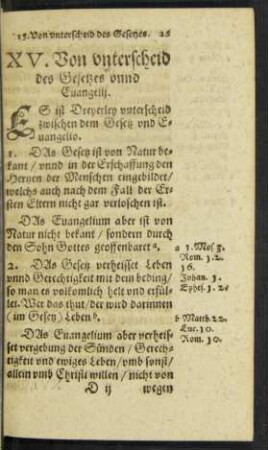 15. Von vnterscheid des Gesetzes. 26
XV. Von vnterscheid
des Gesetzes vnnd
Euangelij.
ES ist Dreyerley vnterscheid
zwischen dem Gesetz vnd E-
uangelio.
1. DAs Gesetz ist von Natur be-
kant / vnnd in der Erschaffung den
Hertzen der Menschen eingebildet /
welchs auch nach dem Fall der Er-
sten Eltern nicht gar verloschen ist.
DAs Euangelium aber ist von
Natur nicht bekant / sondern durch
den Sohn Gottes geoffenbaret a.
a 1. Mos 3.
Rom. 1.2.
16.
Johan. 1.
Ephes. 1. 2
2. DAs Gesetz verheisset Leben
vnnd Gerechtigkeit mit dem beding /
so man es volkomlich helt vnd erfül-
let. Wer das thut / der wird darinnen
(im Gesetz) Leben b.
b Matth. 22.
Luc. 10.
Rom. 10.
DAs Euangelium aber verheis-
set vergebung der Sünden / Gerech-
tigkeit vnd ewiges Leben / vmb sonst /
allein vmb Christi willen / nicht von
D ij wegen